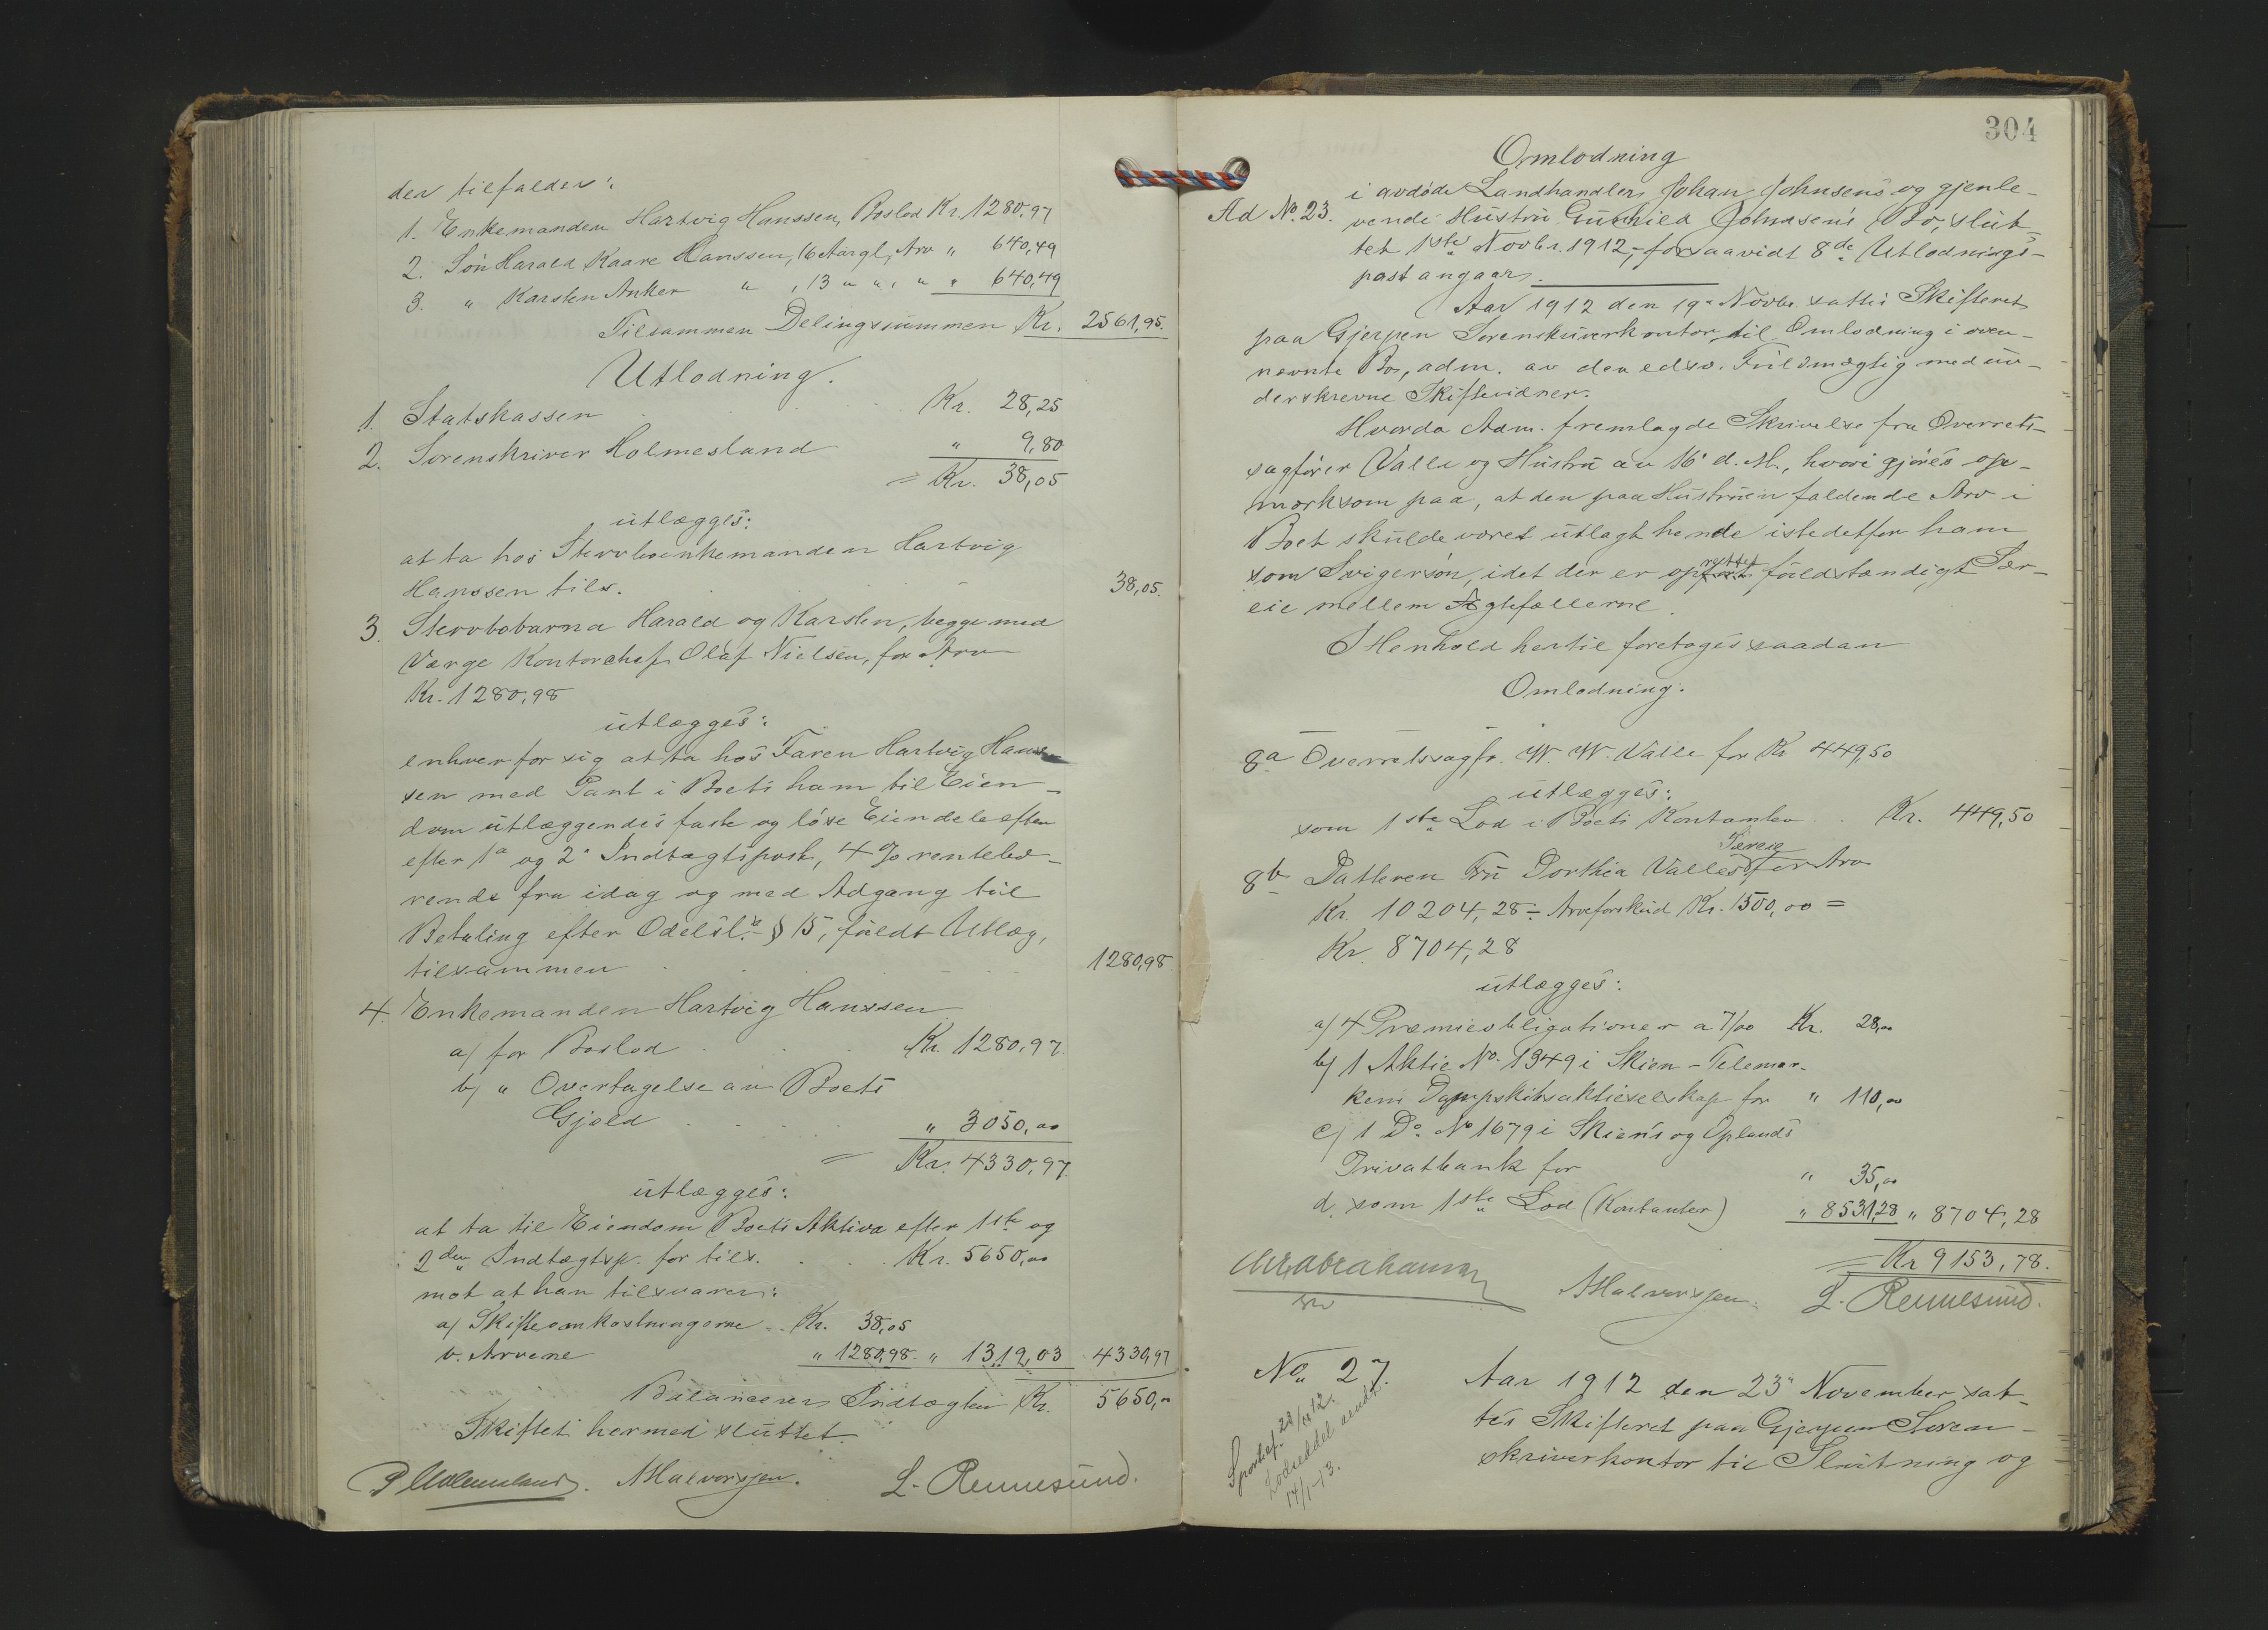 der tilfalder:
1. Enkemanden Hartvig Hanssen, Boslod Kr. 1280,97
2. Søn Harald Kaare Hanssen, 16 Aargl, Arv " 640,49
3. " Karsten Anker " , 13 " " , " " 640,49
Tilsammen Delingssummen Kr. 2561,95.
Utlodning.
1. Statskassen Kr. 28,25
2. Sorenskriver Holmesland " 9,80
= Kr. 38,05
utlægges:
at ta hos Stervboenkemanden Hartvig
Hanssen tils. 38,05.
3. Stervbobarna Harald og Karsten, begge med
Værge Kontorchef Olaf Nielsen, for Arv
Kr. 1280,98
utlægges:
enhver for sig at ta hos Faren Hartvig Hans-
sen med Pant i Boets ham til Eien-
dom utlæggendes faste og løse Eiendele efter
efter 1ª og 2ª Indtægtspost, 4 % rentebæ-
rende fra idag og med Adgang til
Betaling efter Odelsl.s § 15, fuldt Utlæg,
tilsammen 1280,98
4. Enkemanden Hartvig Hanssen
a) for Boslod Kr. 1280,97.
b) " Overtagelse av Boets
Gjæld " 3050,00
= Kr. 4330,97.
utlægges:
at ta til Eiendom Boets Aktiva efter 1ste og
2den Indtægtsp. for tils. Kr. 5650,00
mot at han tilsvarer:
a) Skifteomkostningerne Kr. 38,05
b. Arvene " 1280,98. " 1319,03 4330,97
Balancerer Indtægten Kr. 5650,00
Skiftet hermed sluttet.
P Holmesland. A Halvorsen. L. Rennesund.
304
Omlodning
Ad No. 23. i avdøde Landhandler Johan Johnsens og gjenle-
vende Hustru Gunhild Johnsens Bo, slut-
tet 1ste Novbr. 1912, forsaavidt 8de Utlodnings-
post angaar.
Aar 1912 den 19. Novbr sattes Skifteret
paa Gjerpen Sorenskriverkontor til Omlodning i oven-
nævnte Bo, adm. av den edsv. Fuldmægtig med un-
derskrevne Skiftevidner.
Hvorda Adm. fremlagde Skrivelse fra Overrets-
sagfører Valle og Hustru av 16' d. M., hvori gjøres op-
mærksom paa, at den paa Hustruen faldende Arv i
Boet skulde været utlagt hende istedetfor ham
som Svigersøn, idet der er oprettet fuldstændigt Sær-
eie mellem Ægtefællerne.
I Henhold hertil foretoges saadan
Omlodning:
8a Overretssagfr. W. W. Valle for Kr 449,50
utlægges:
som 1ste Lod i Boets Kontanter Kr. 449,50
8b Datteren Fru Dorthea Valles Særeie for Arv
Kr. 10204,28 ÷ Arveforskud Kr. 1500,00 =
Kr. 8704,28
utlægges:
a) 4 Præmieobligationer a 7/00 Kr. 28,00
b) 1 Aktie No. 1349 i Skien-Telemar-
kens Dampskibsaktieselskap for " 110,00
c) 1 Do. No 1679 i Skiens og Oplands
Privatbank for " 35,00
d. som 1ste Lod (Kontanter) " 8531,28 " 8704,28
= Kr 9153,78.
Chr. Abrahamsen A Halvorsen. L. Rennesund.
No. 27. Aar 1912 den 23' November sat-
tes Skifteret paa Gjerpen Soren-
skriverkontor til Slutning og
Sportel. 28/11 12.
Lodseddel sendt
14/1-13.